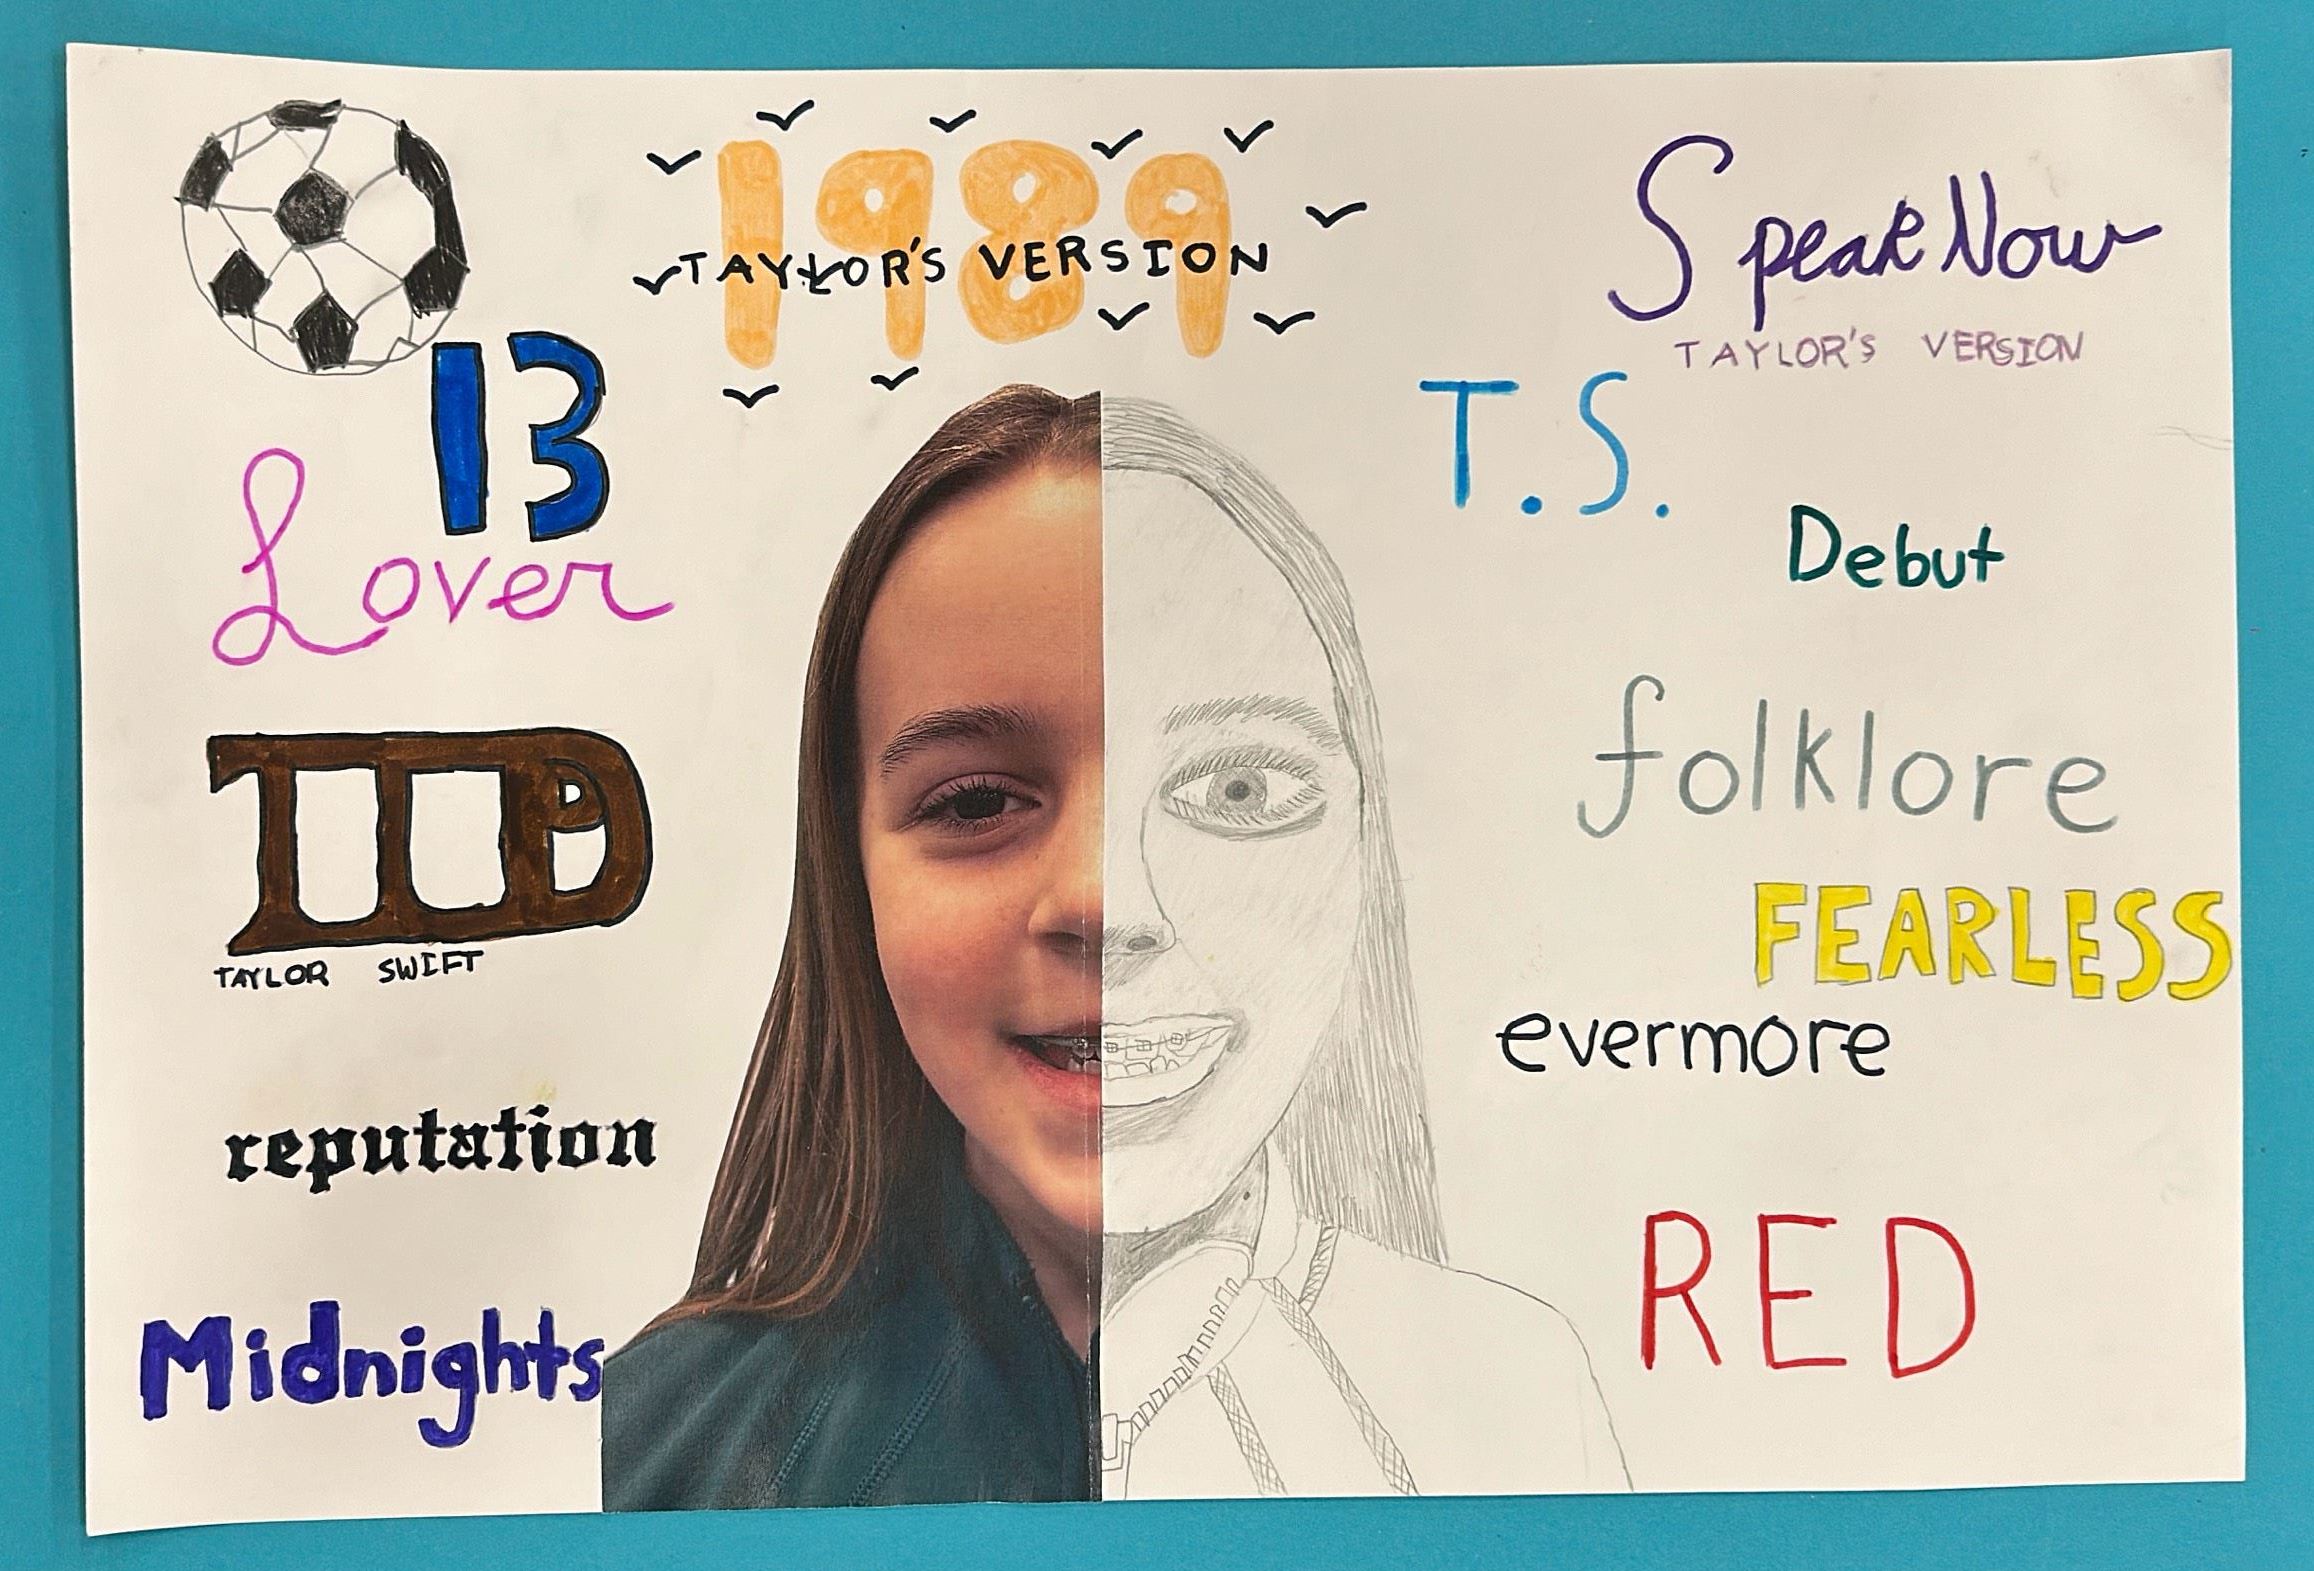 1989
TAYLOR'S VERSION
Speak Now
TAYLOR'S VERSION
13
T.S.
Lover
Debut
TTPD
TAYLOR SWIFT
folklore
FEARLESS
evermore
reputation
RED
Midnights